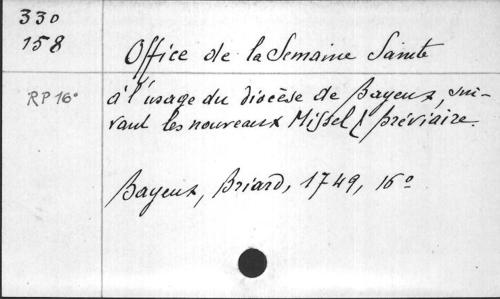 330
158
Office de la Semaine Sainte
RP 16°
à l'usage du diocèse de Bayeux, sui-
vant les nouveaux Missel & bréviaire.
Bayeux, Briard, 1749, 16°